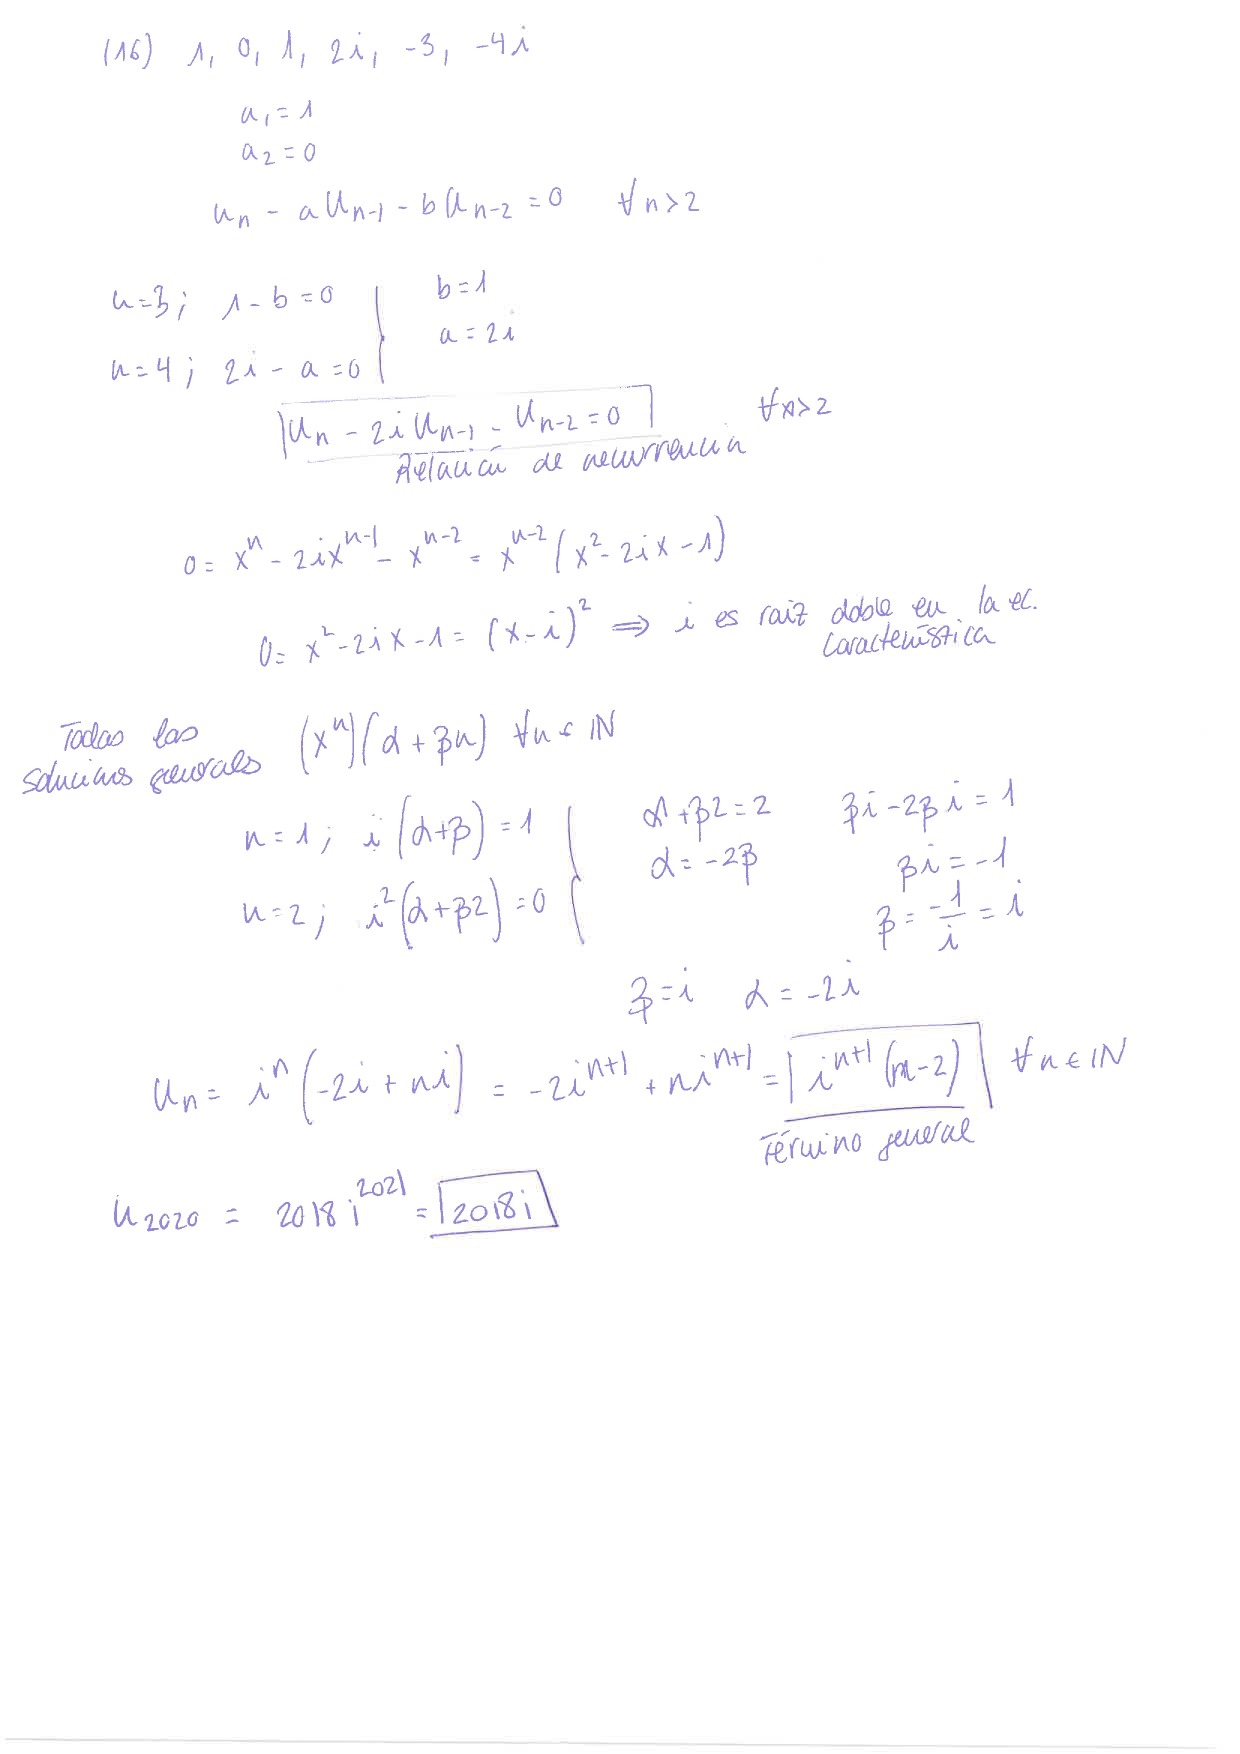 (16) 1, 0, 1, 2i, -3, -4i
a₁ = 1
a₂ = 0
uₙ - a uₙ₋₁ - b uₙ₋₂ = 0 ∀n>2
n=3; 1 - b = 0 b=1
n=4; 2i - a = 0 a = 2i
uₙ - 2i uₙ₋₁ - uₙ₋₂ = 0 ∀n>2
Relación de recurrencia
0 = xⁿ - 2ixⁿ⁻¹ - xⁿ⁻² = xⁿ⁻² (x² - 2ix - 1)
0 = x² - 2ix - 1 = (x - i)² ⟹ i es raiz doble en la ec.
característica
Todas las (xⁿ)(α + βn) ∀n ∈ ℕ
soluciones generales
n=1; i(α+β) = 1 α + β2 = 2 βi - 2βi = 1
α = -2β βi = -1
n=2; i²(α+β2) = 0 β = -1/i = i
β = i α = -2i
uₙ = iⁿ(-2i + ni) = -2iⁿ⁺¹ + niⁿ⁺¹ = iⁿ⁺¹(n-2) ∀n ∈ ℕ
Término general
u₂₀₂₀ = 2018 i²⁰²¹ = 2018i